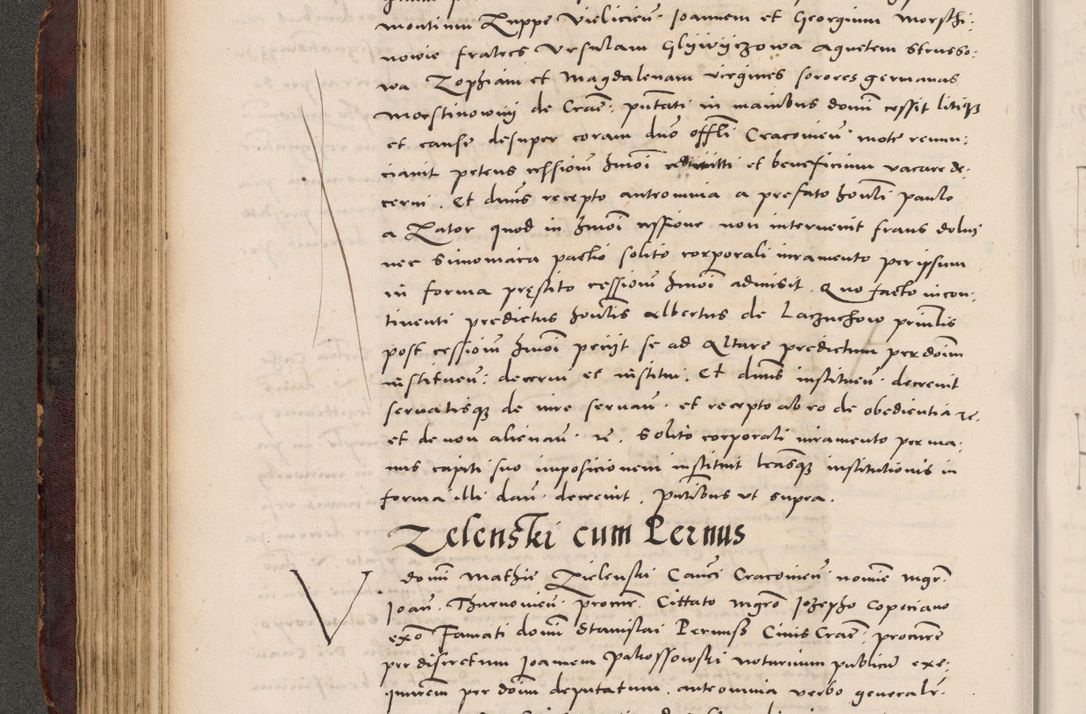 montium Zuppe Vieliciens. Joannem et Georgium Morszti:
nowie fratres Ursulam Glywyczowa Agnetem Struso:
wa Zophiam et Magdalenam virgines sorores germanas
Morstinowny de Crac: pntati in manibus domini cessit litiqz
et cause desuper coram duo offli Cracovien. mote renun:
ciavit petens cessionem hmoi et beneficium vacare de:
cerni. Et dnus recepto antomnia a prefato honli Paulo
a Zator quod in hmoi cessione non intervenit fraus dolus
nec Simoniaca pactio solito corporali iuramento per ipsum
in forma prestito cessionem hmoi admisit. Quo facto incon:
tinenti predictus honlis Albertus de Laczuchow prinlis
post cessionem hmoi petiit se ad Altare predictum per doim
instituen: decerni et institui. Et dnus instituen. decrevit
servatisqz de iure servan. et recepto ab eo de obedientia etc.
et de non alienan. etc. solito corporali iuramento per ma:
nus capiti suo imposicionem instituit lrasqz institutionis in
forma illi dari decrevit. Pntibus ut supra.
Zelenski cum Pernus
V domini Mathie Zielenski Canci Cracovien. nomine mgr.
Joan. Tharnovien. procur. Cittato mgro Jozepho Copeciano
exo Famati domini Stanislai Pernusz Civis Crac: procure
per discretum Joannem Pakossowski notarium publicum exe:
quutem per doim deputatum. anteomnia verbo generalr.